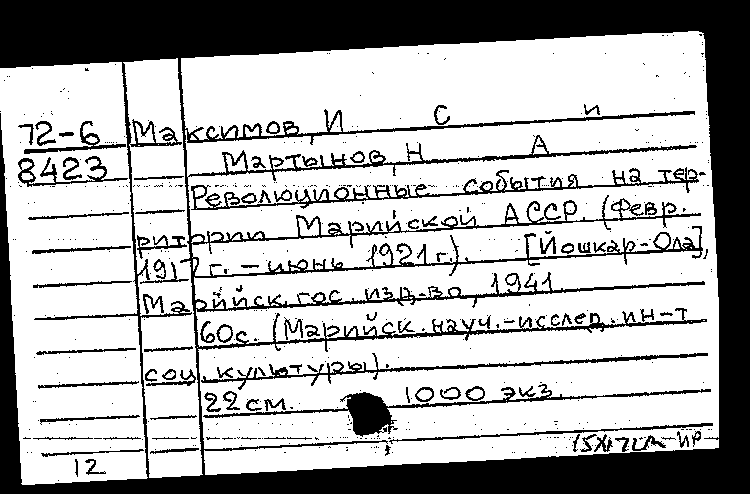 72-6 Максимов, И С и
8423 Мартынов, Н А
Революционные события на тер-
ритории Марийской АССР. (Февр.
1917 г. – июнь 1921 г.). [Йошкар-Ола],
Марийск. гос. изд-во, 1941.
60с. (Марийск. науч.-исслед. ин-т
соц. культуры).
22 см. 1000 экз.
12